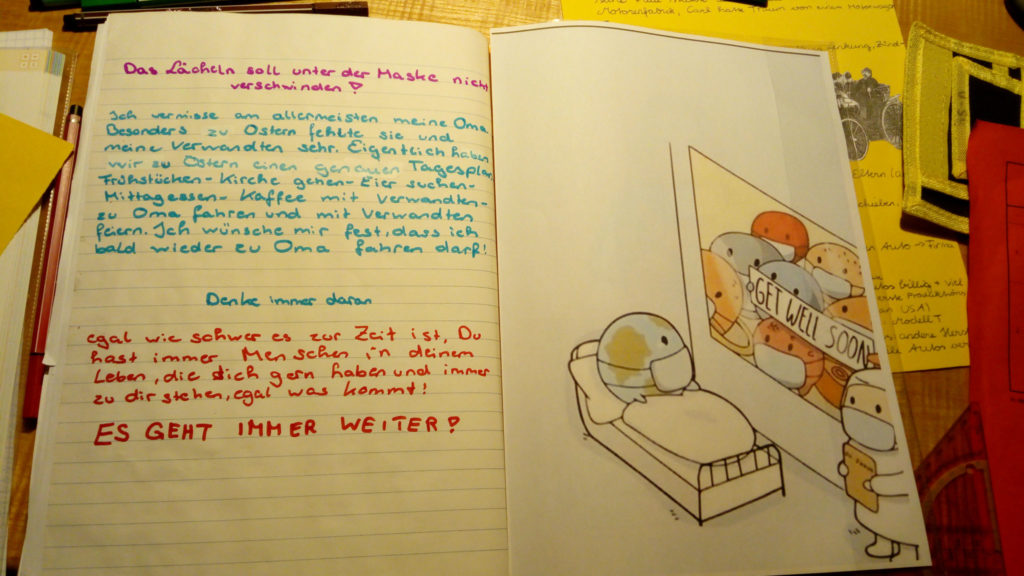 Das Lächeln soll unter der Maske nicht
verschwinden!
Ich vermisse am allermeisten meine Oma.
Besonders zu Ostern fehlte sie und
meine Verwandten sehr. Eigentlich haben
wir zu Ostern einen genauen Tagesplan
Frühstücken-Kirche gehen-Eier suchen-
Mittagessen-Kaffee mit Verwandten-
zu Oma fahren und mit Verwandten
feiern. Ich wünsche mir fest, dass ich
bald wieder zu Oma fahren darf!
Denke immer daran
egal wie schwer es zur Zeit ist, Du
hast immer Menschen in deinem
Leben, die dich gern haben und immer
zu dir stehen, egal was kommt!
ES GEHT IMMER WEITER!
GET WELL SOON
Motorenfabrik, Carl hatte Traum von einem
Eltern
Auto → Firma
billig + viel
USA)
Modell T